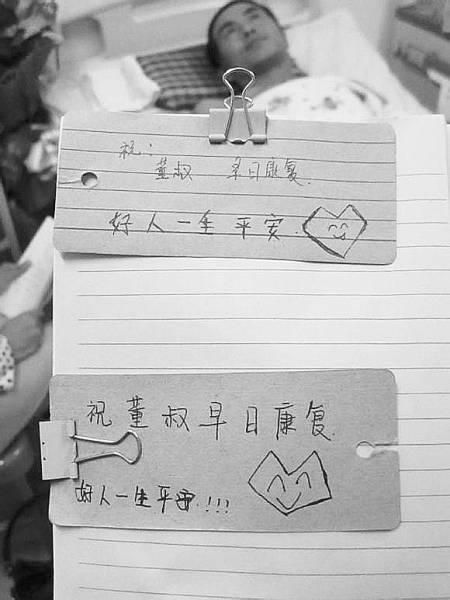 祝:
董叔 早日康复.
好人一生平安.
祝董叔早日康复
好人一生平安.!!!